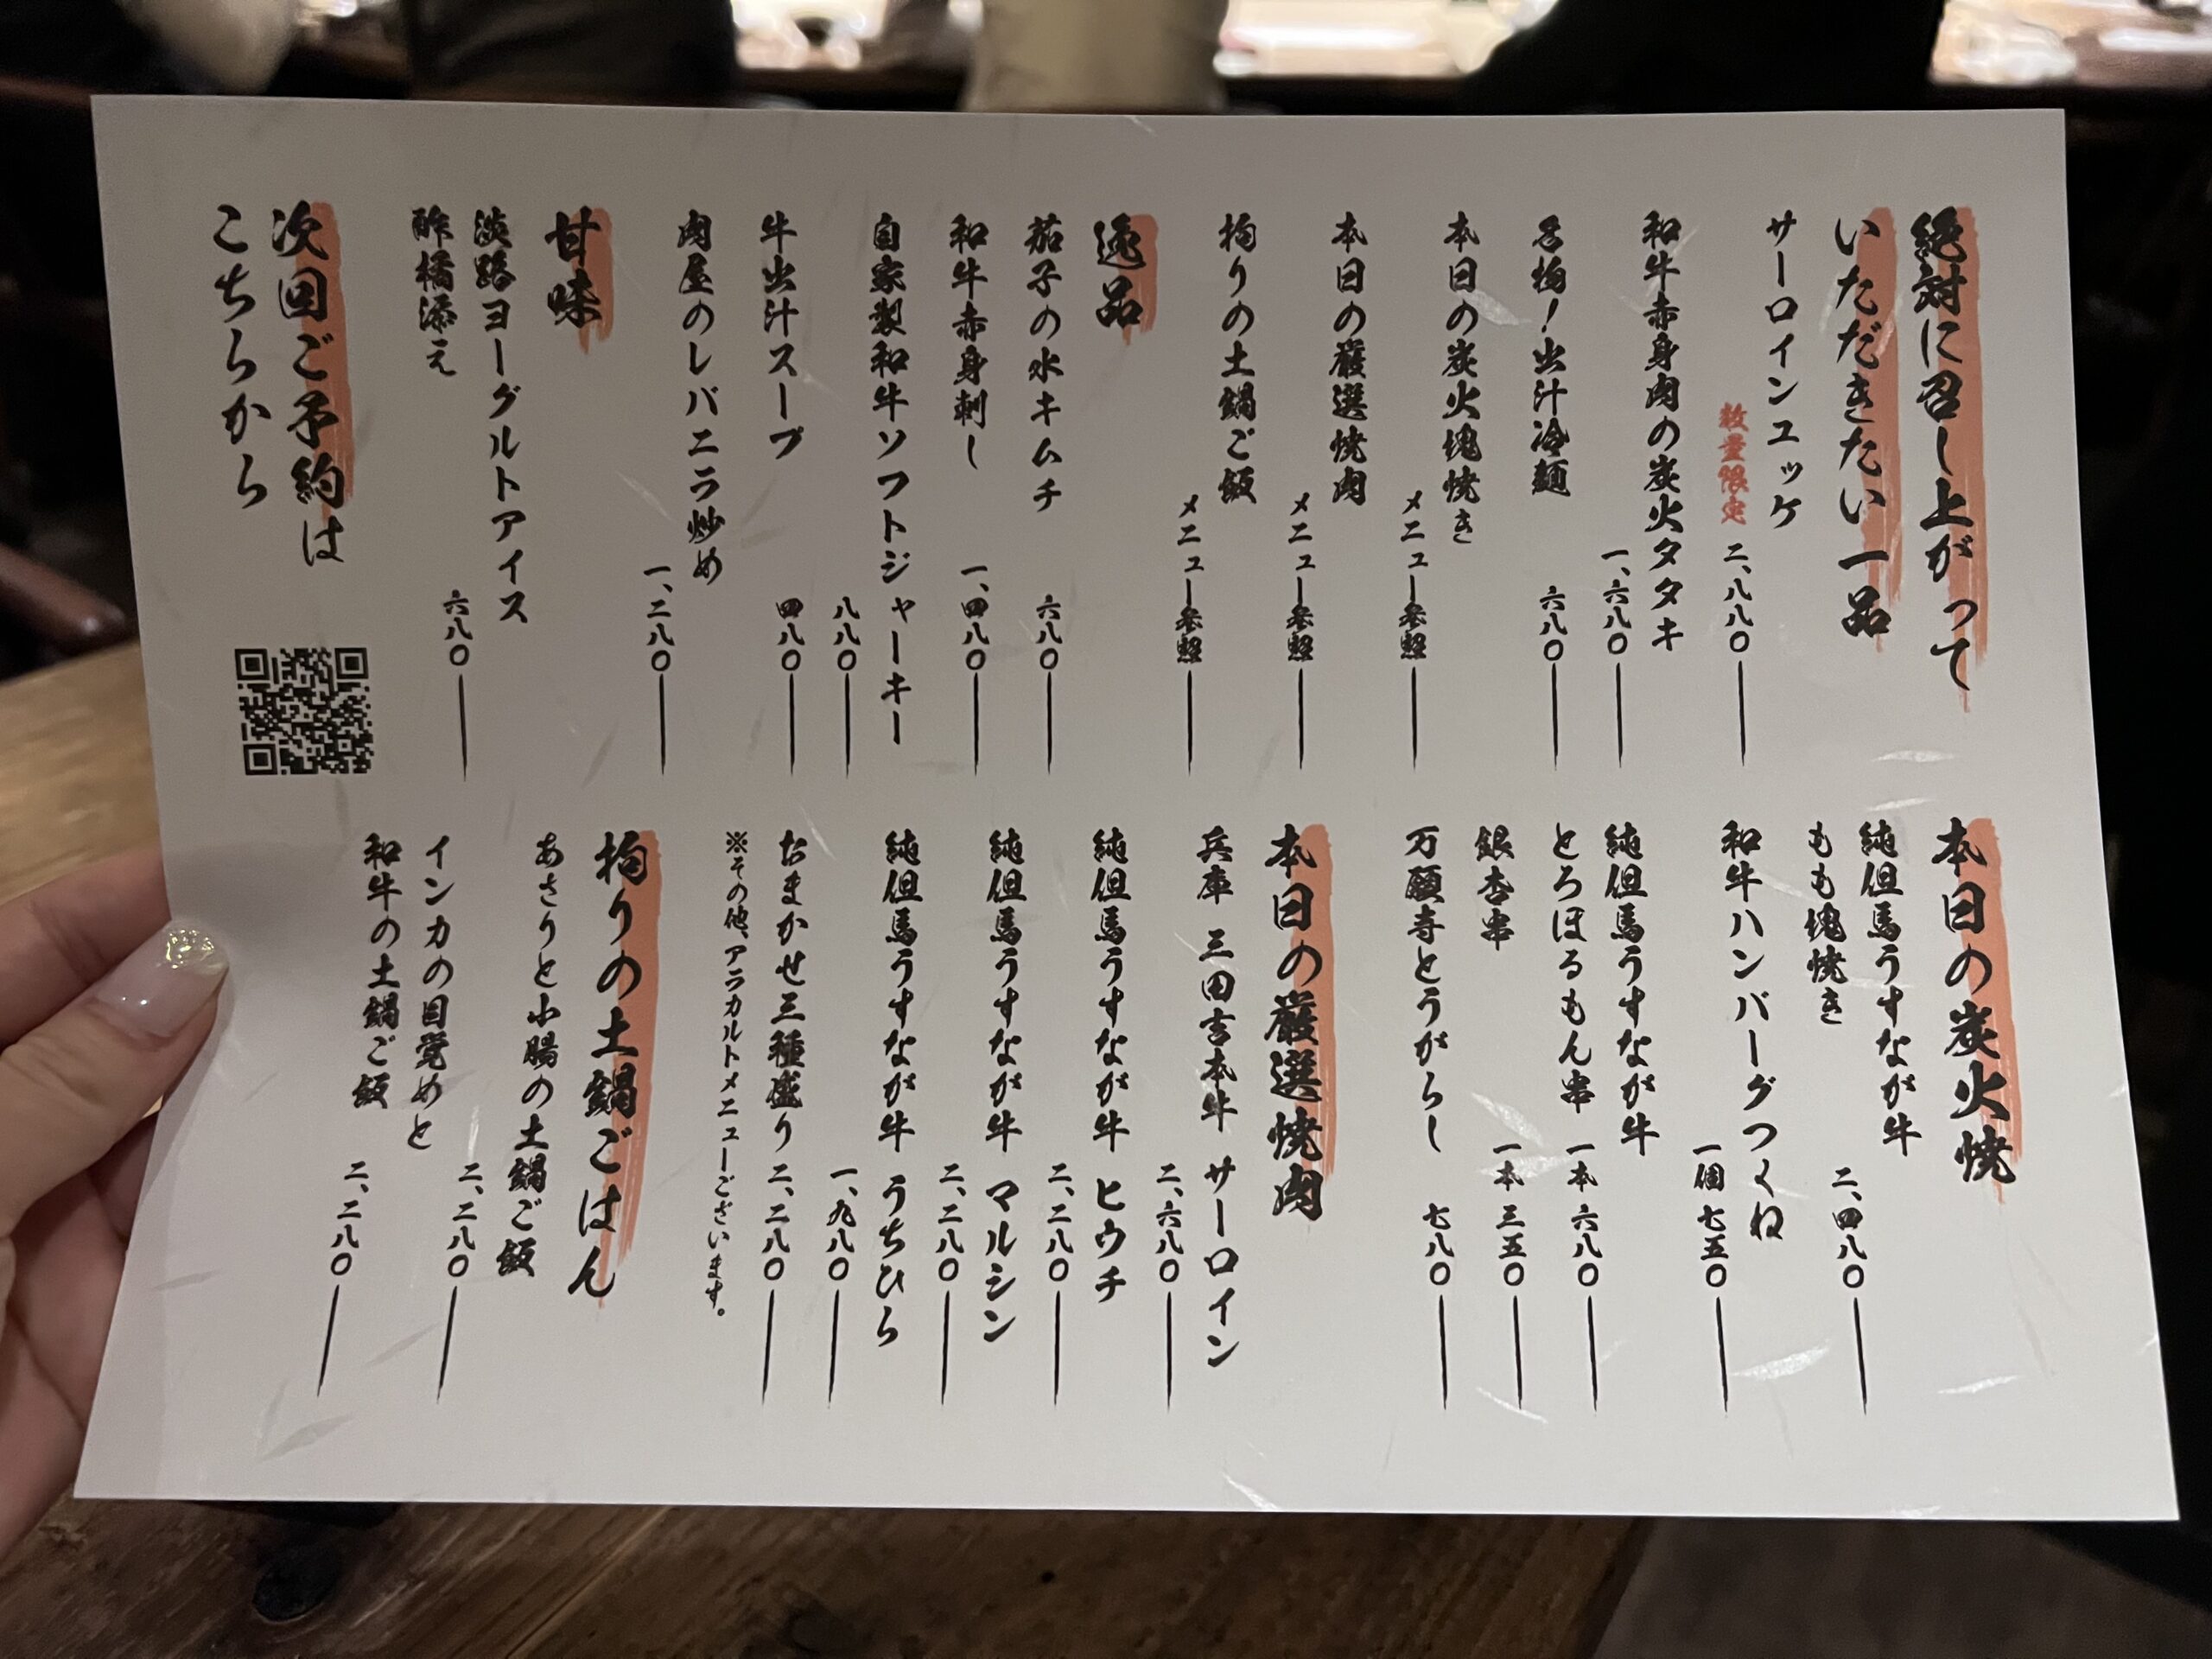 絶対に召し上がって
いただきたい一品
サーロインユッケ
数量限定 二、八八〇
和牛赤身肉の炭火タタキ
一、六八〇
名物!出汁冷麺
六八〇
本日の炭火塊焼き
メニュー参照
本日の厳選焼肉
メニュー参照
拘りの土鍋ご飯
メニュー参照
逸品
茄子の水キムチ
六八〇
和牛赤身刺し
一、四八〇
自家製和牛ソフトジャーキー
八八〇
牛出汁スープ
四八〇
肉屋のレバニラ炒め
一、二八〇
甘味
淡路ヨーグルトアイス
酢橘添え
六八〇
次回ご予約は
こちらから
本日の炭火焼
純但馬うすなが牛
もも塊焼き
二、四八〇
和牛ハンバーグつくね
一個 七五〇
純但馬うすなが牛
とろほるもん串
一本 六八〇
銀杏串
一本 三五〇
万願寺とうがらし
七八〇
本日の厳選焼肉
兵庫 三田吉本牛 サーロイン
二、六八〇
純但馬うすなが牛 ヒウチ
二、二八〇
純但馬うすなが牛 マルシン
二、二八〇
純但馬うすなが牛 うちひら
一、九八〇
おまかせ三種盛り
二、二八〇
※その他、アラカルトメニューございます。
拘りの土鍋ごはん
あさりと小腸の土鍋ご飯
二、二八〇
インカの目覚めと
和牛の土鍋ご飯
二、二八〇